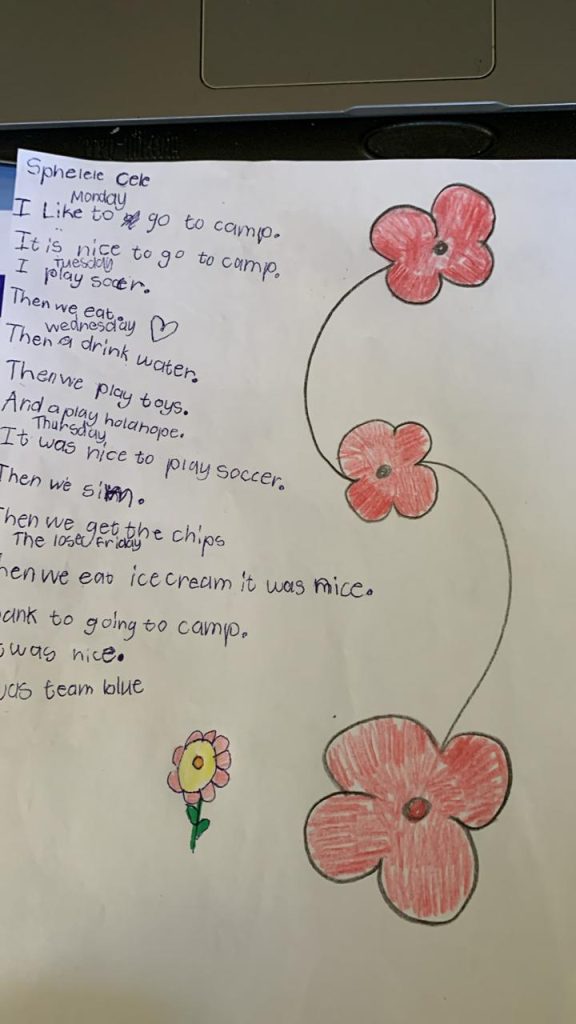 Sphelele Cele
Monday
I Like to go to camp.
It is nice to go to camp.
Tuesday
I play soccer.
Then we eat.
wednesday
Then a drink water.
Then we play toys.
And a play holahope.
Thursday
It was nice to play soccer.
Then we sim.
Then we get the chips
The lose Friday
hen we eat ice cream it was nice.
ank to going to camp.
t was nice.
was team blue